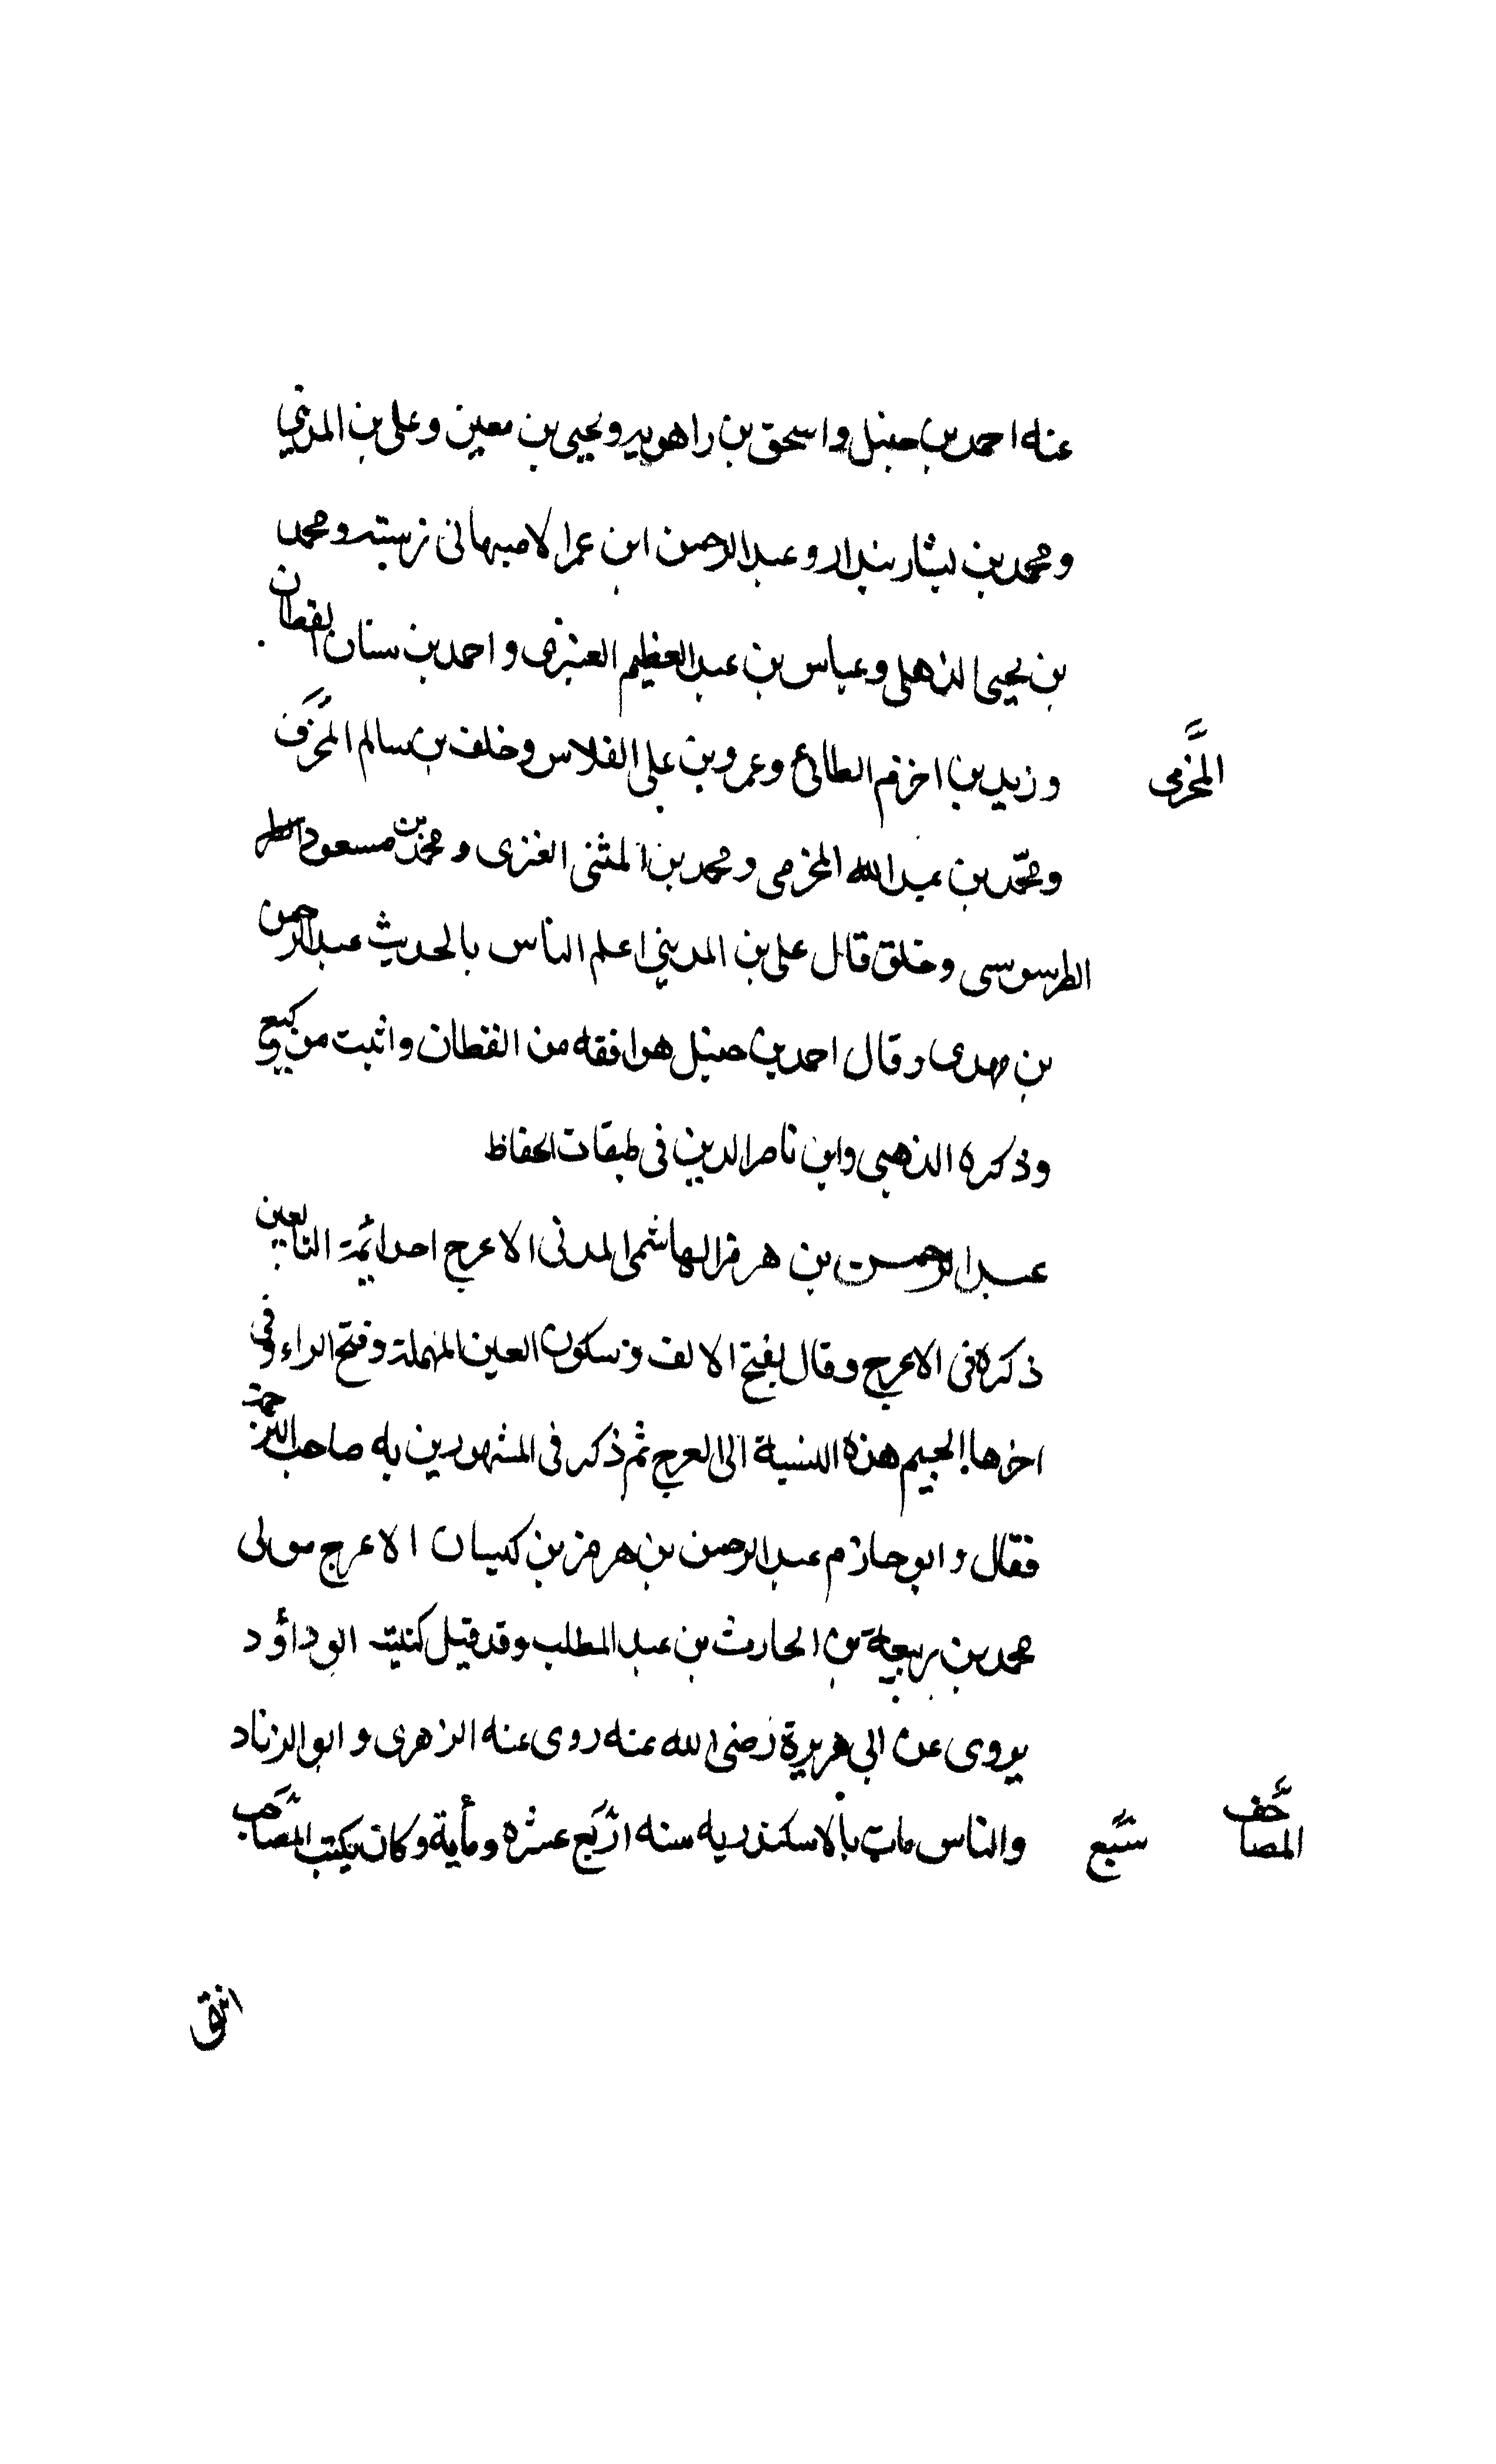 عنه احمد بن حنبل واسحق بن راهويه ويحيى بن معين وعلى بن المديني
ومحمد بن بشار بندار وعبد الرحمن ابن عمر الاصبهانى رسته ومحمد
بن يحيى الذهلى وعباس بن عبد العظيم العنبرى واحمد بن سنان القطان
وزيد بن اخزم الطائ وعمرو بن على الفلاس وخلف بن سالم المخرمى
المخرمى
ومحمد بن عبد الله المخرمى ومحمد بن المثنى العنزى ومحمد بن مسعود
الطرسوسى وخلق قال على بن المديني اعلم الناس بالحديث عبد الرحمن
بن مهدى وقال احمد بن حنبل هو افقه من القطان واثبت من وكيع
وذكره الذهبى وابن ناصر الدين فى طبقات الحفاظ
عبد الرحمن بن هرمز الهاشمى المدنى الاعرج احد ائمة التابعين
ذكره فى الاعرج وقال بفتح الالف وسكون العين المهملة وفتح الراء وفى
اخرها الجيم هذه النسبة الى العرج ثم ذكر فى المشهورين به صاحب الترجمة
فقال وابو حازم عبد الرحمن بن هرمز بن كيسان الاعرج مولى
محمد بن ربيعة بن الحارث بن عبد المطلب وقد قيل كنيته ابو داؤد
يروى عن ابي هريرة رضى الله عنه روى عنه الزهرى وابو الزناد
والناس مات بالاسكندريه سنه اربع عشره ومأية وكان يكتب المصاحف
سبع
المصاحف
انتهى